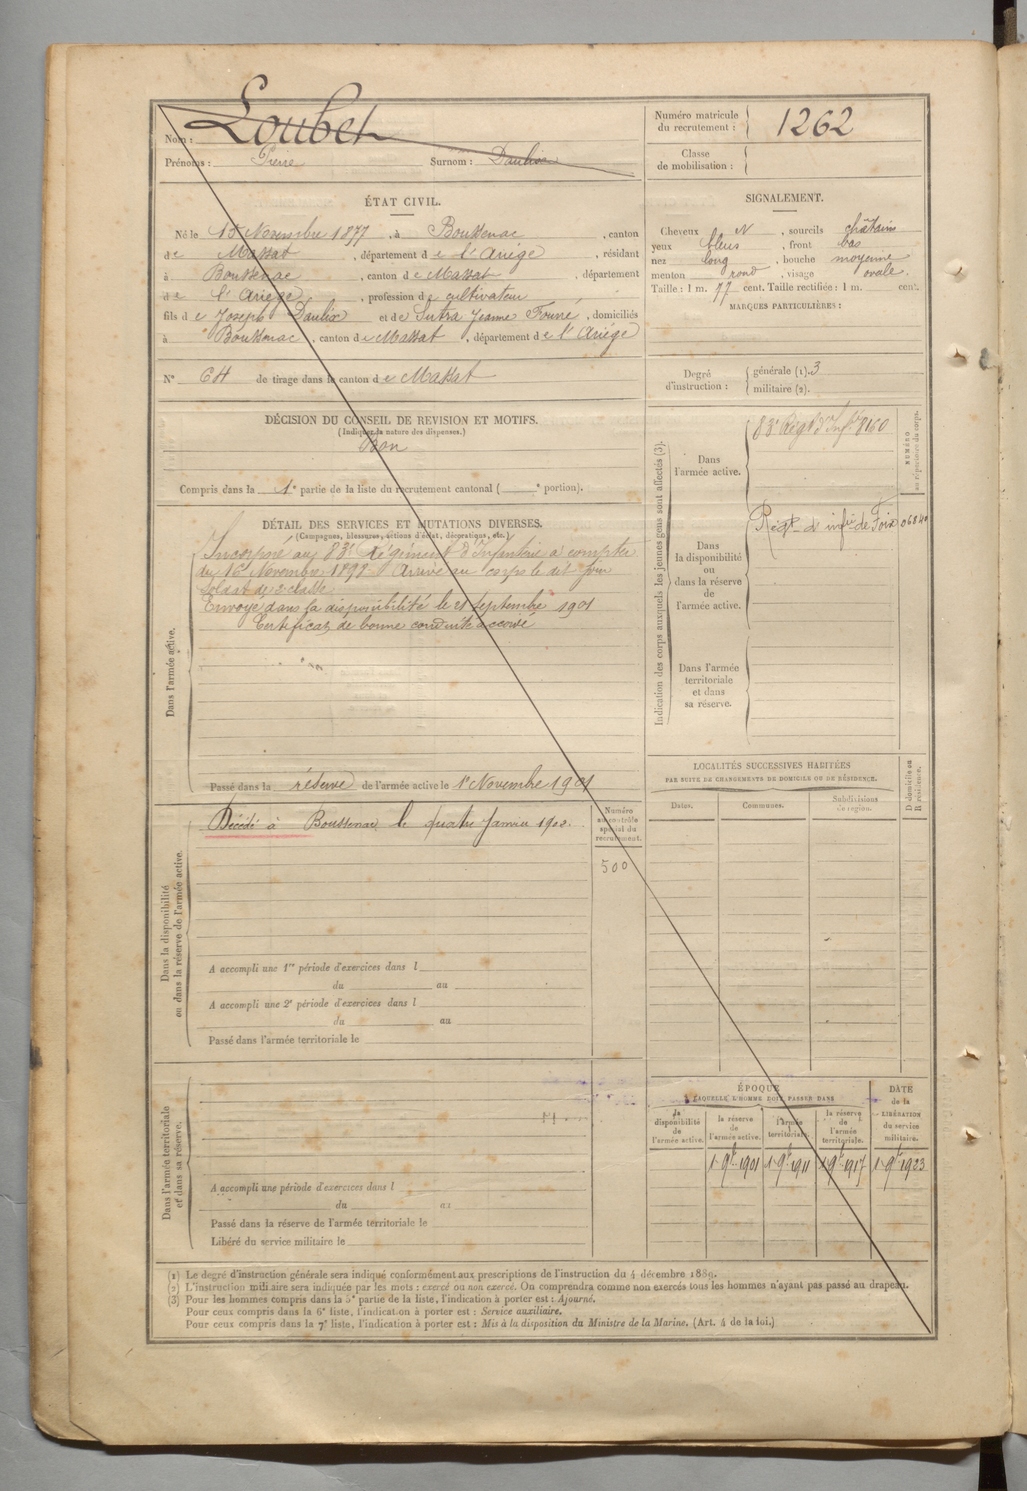 Nom : Loubet
Prénoms : Pierre Surnom : Daulix
Numéro matricule du recrutement : 1262
Classe de mobilisation :
ÉTAT CIVIL.
Né le 15 Novembre 1877, à Boussenac, canton
de Massat, département de l'Ariège, résidant
à Boussenac, canton de Massat, département
de l'Ariège, profession de cultivateur
fils de Joseph Daulix et de Sutra Jeanne Fourié, domiciliés
à Boussenac, canton de Massat, département de l'Ariège
N° 64 de tirage dans le canton de Massat
SIGNALEMENT.
Cheveux N, sourcils châtains
yeux bleus, front bas
nez long, bouche moyenne
menton rond, visage ovale.
Taille : 1 m. 77 cent. Taille rectifiée : 1 m. cent.
MARQUES PARTICULIÈRES :
Degré d'instruction : générale (1). 3
militaire (2).
DÉCISION DU CONSEIL DE REVISION ET MOTIFS.
(Indiquer la nature des dispenses.)
Bon
Compris dans la 1e partie de la liste du recrutement cantonal ( e portion).
DÉTAIL DES SERVICES ET MUTATIONS DIVERSES.
(Campagnes, blessures, actions d'éclat, décorations, etc.)
Dans l'armée active.
Incorporé au 83e Régiment d'Infanterie à compter
du 16 Novembre 1898. Arrivé au corps le dit jour
soldat de 2e classe
Envoyé dans la disponibilité le 21 septembre 1901
Certificat de bonne conduite accordé
Passé dans la réserve de l'armée active le 1er Novembre 1901
Indication des corps auxquels les jeunes gens sont affectés (3).
NUMÉRO au répertoire du corps.
Dans l'armée active.
83e Régt d'Infie 8160
Dans la disponibilité ou dans la réserve de l'armée active.
Régt d'infie de Foix 06840
Dans l'armée territoriale et dans sa réserve.
LOCALITÉS SUCCESSIVES HABITÉES
PAR SUITE DE CHANGEMENTS DE DOMICILE OU DE RÉSIDENCE.
Dates. Communes. Subdivisions de région. D domicile ou R résidence.
Dans la disponibilité ou dans la réserve de l'armée active.
Décédé à Boussenac le quatre Janvier 1902.
Numéro au contrôle spécial du recrutement.
500
A accompli une 1re période d'exercices dans l
du au
A accompli une 2e période d'exercices dans l
du au
Passé dans l'armée territoriale le
Dans l'armée territoriale et dans sa réserve.
A accompli une période d'exercices dans l
du au
Passé dans la réserve de l'armée territoriale le
Libéré du service militaire le
ÉPOQUE
À LAQUELLE L'HOMME DOIT PASSER DANS
la disponibilité de l'armée active. la réserve de l'armée active. l'armée territoriale. la réserve de l'armée territoriale.
DATE de la LIBÉRATION du service militaire.
1 9bre 1901 1 9bre 1911 1 9bre 1917 1 9bre 1923
(1) Le degré d'instruction générale sera indiqué conformément aux prescriptions de l'instruction du 4 décembre 1889.
(2) L'instruction militaire sera indiquée par les mots : exercé ou non exercé. On comprendra comme non exercés tous les hommes n'ayant pas passé au drapeau.
(3) Pour les hommes compris dans la 5e partie de la liste, l'indication à porter est : Ajourné.
Pour ceux compris dans la 6e liste, l'indication à porter est : Service auxiliaire.
Pour ceux compris dans la 7e liste, l'indication à porter est : Mis à la disposition du Ministre de la Marine. (Art. 4 de la loi.)